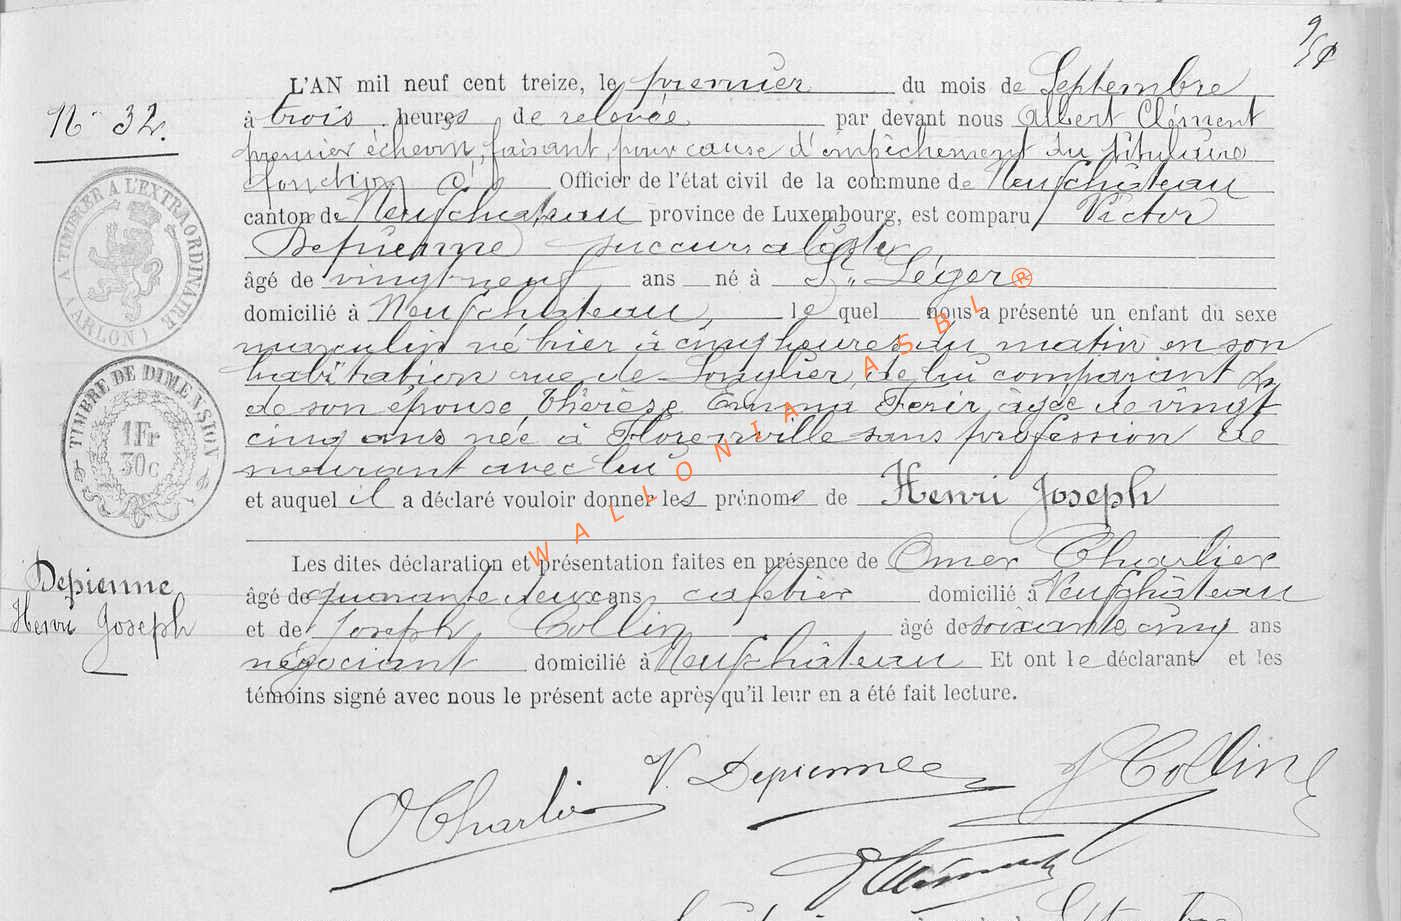 N° 32.
L'AN mil neuf cent treize, le premier du mois de Septembre
à trois heures de relevée par devant nous Albert Clément
premier échevin, faisant, pour cause d'empêchement du titulaire
fonction d' Officier de l'état civil de la commune de Neufchâteau
canton de Neufchâteau province de Luxembourg, est comparu Victor
Depienne succursaliste
âgé de vingt neuf ans né à St. Léger
domicilié à Neufchâteau, lequel nous a présenté un enfant du sexe
masculin né hier à cinq heures du matin en son
habitation rue de Longlier, de lui comparant &
de son épouse Thérèse Emma Ferir, âgée de vingt
cinq ans née à Florenville sans profession de
meurant avec lui
et auquel il a déclaré vouloir donner les prénoms de Henri Joseph
Les dites déclaration et présentation faites en présence de Omer Charlier
âgé de quarante deux ans cafetier domicilié à Neufchâteau
et de Joseph Collin âgé de soixante cinq ans
négociant domicilié à Neufchâteau Et ont le déclarant et les
témoins signé avec nous le présent acte après qu'il leur en a été fait lecture.
A TIMBRER A L'EXTRAORDINAIRE
(A ARLON)
TIMBRE DE DIMENSION
1Fr
30c
Depienne
Henri Joseph
WALLONIA ASBL ®
O Charlier
V. Depienne
J Collin